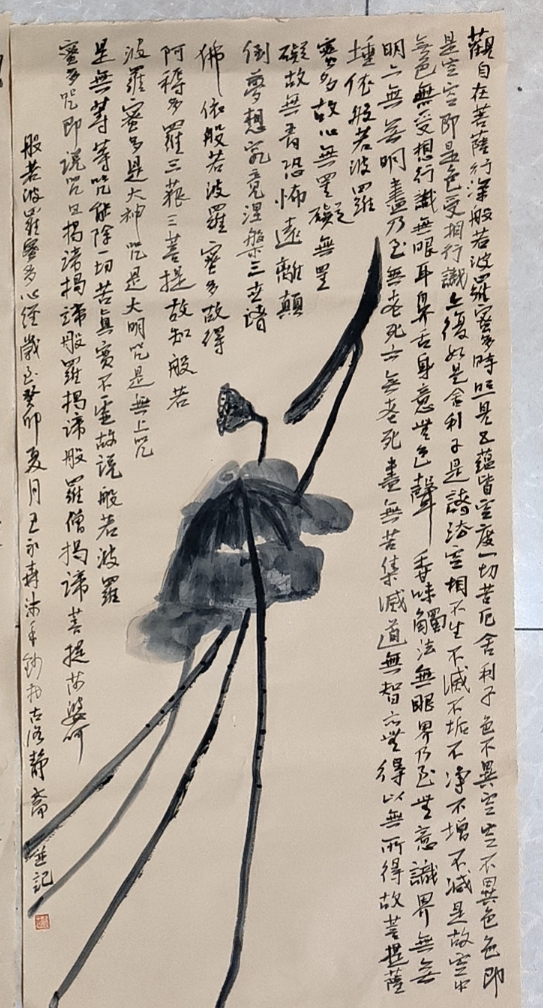 觀自在菩薩行深般若波羅蜜多時照見五蘊皆空度一切苦厄舍利子色不異空空不異色色即
是空空即是色受想行識亦復如是舍利子是諸法空相不生不滅不垢不淨不增不減是故空中
無色無受想行識無眼耳鼻舌身意無色聲香味觸法無眼界乃至無意識界無無
明亦無無明盡乃至無老死亦無老死盡無苦集滅道無智亦無得以無所得故菩提薩
埵依般若波羅
蜜多故心無罣礙無罣
礙故無有恐怖遠離顛
倒夢想究竟涅槃三世諸
佛依般若波羅蜜多故得
阿耨多羅三藐三菩提故知般若
波羅蜜多是大神咒是大明咒是無上咒
是無等等咒能除一切苦真實不虛故說般若波羅
蜜多咒即說咒曰揭諦揭諦般羅揭諦般羅僧揭諦菩提莎婆呵
般若波羅蜜多心經歲在癸卯夏月王永壽沐手鈔於古洛靜齋並記